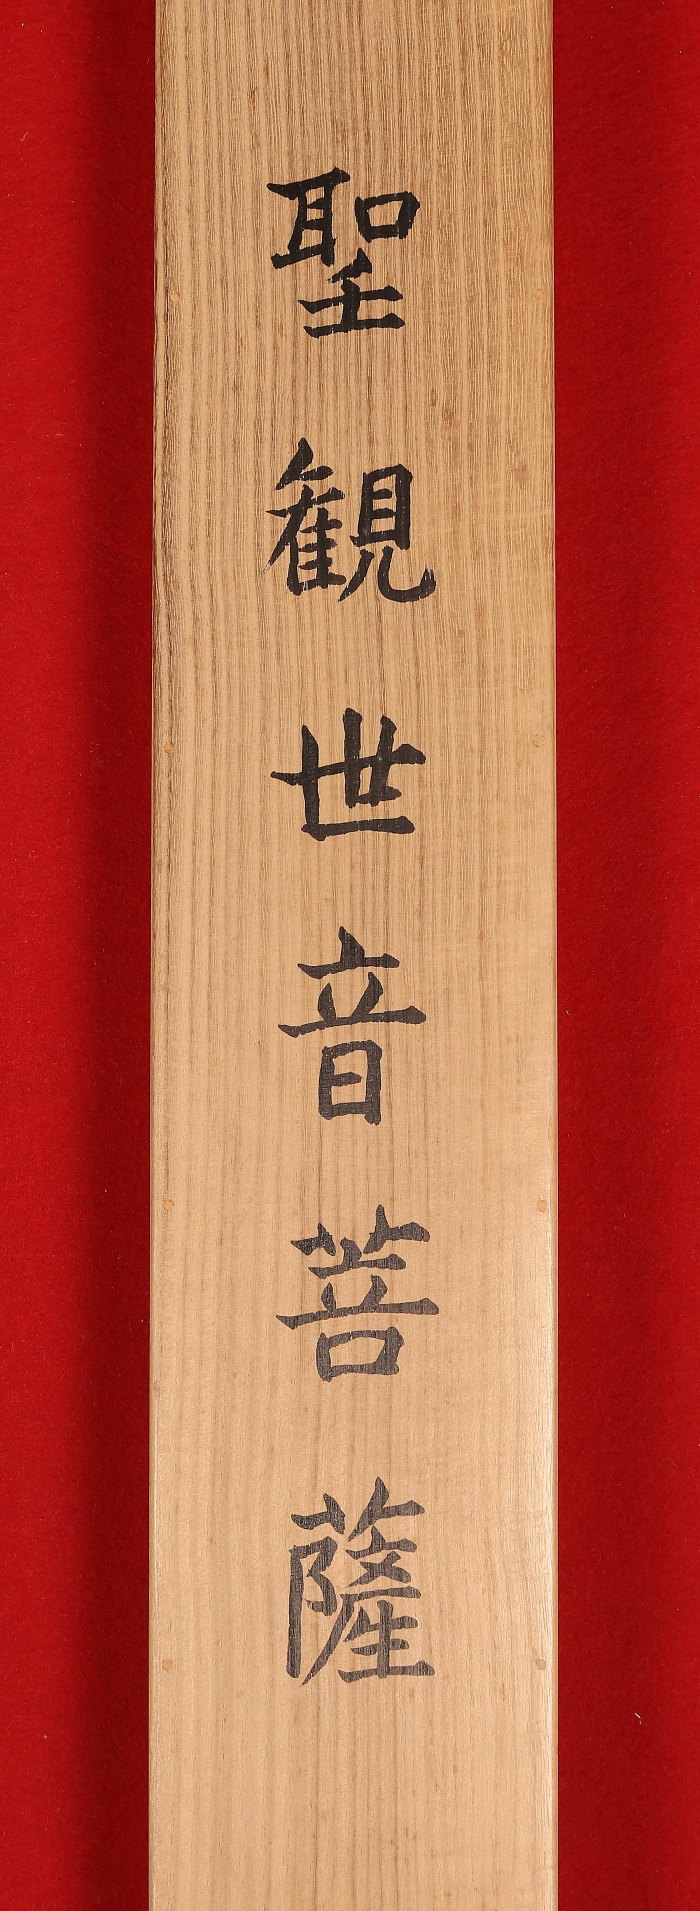 聖観世音菩薩